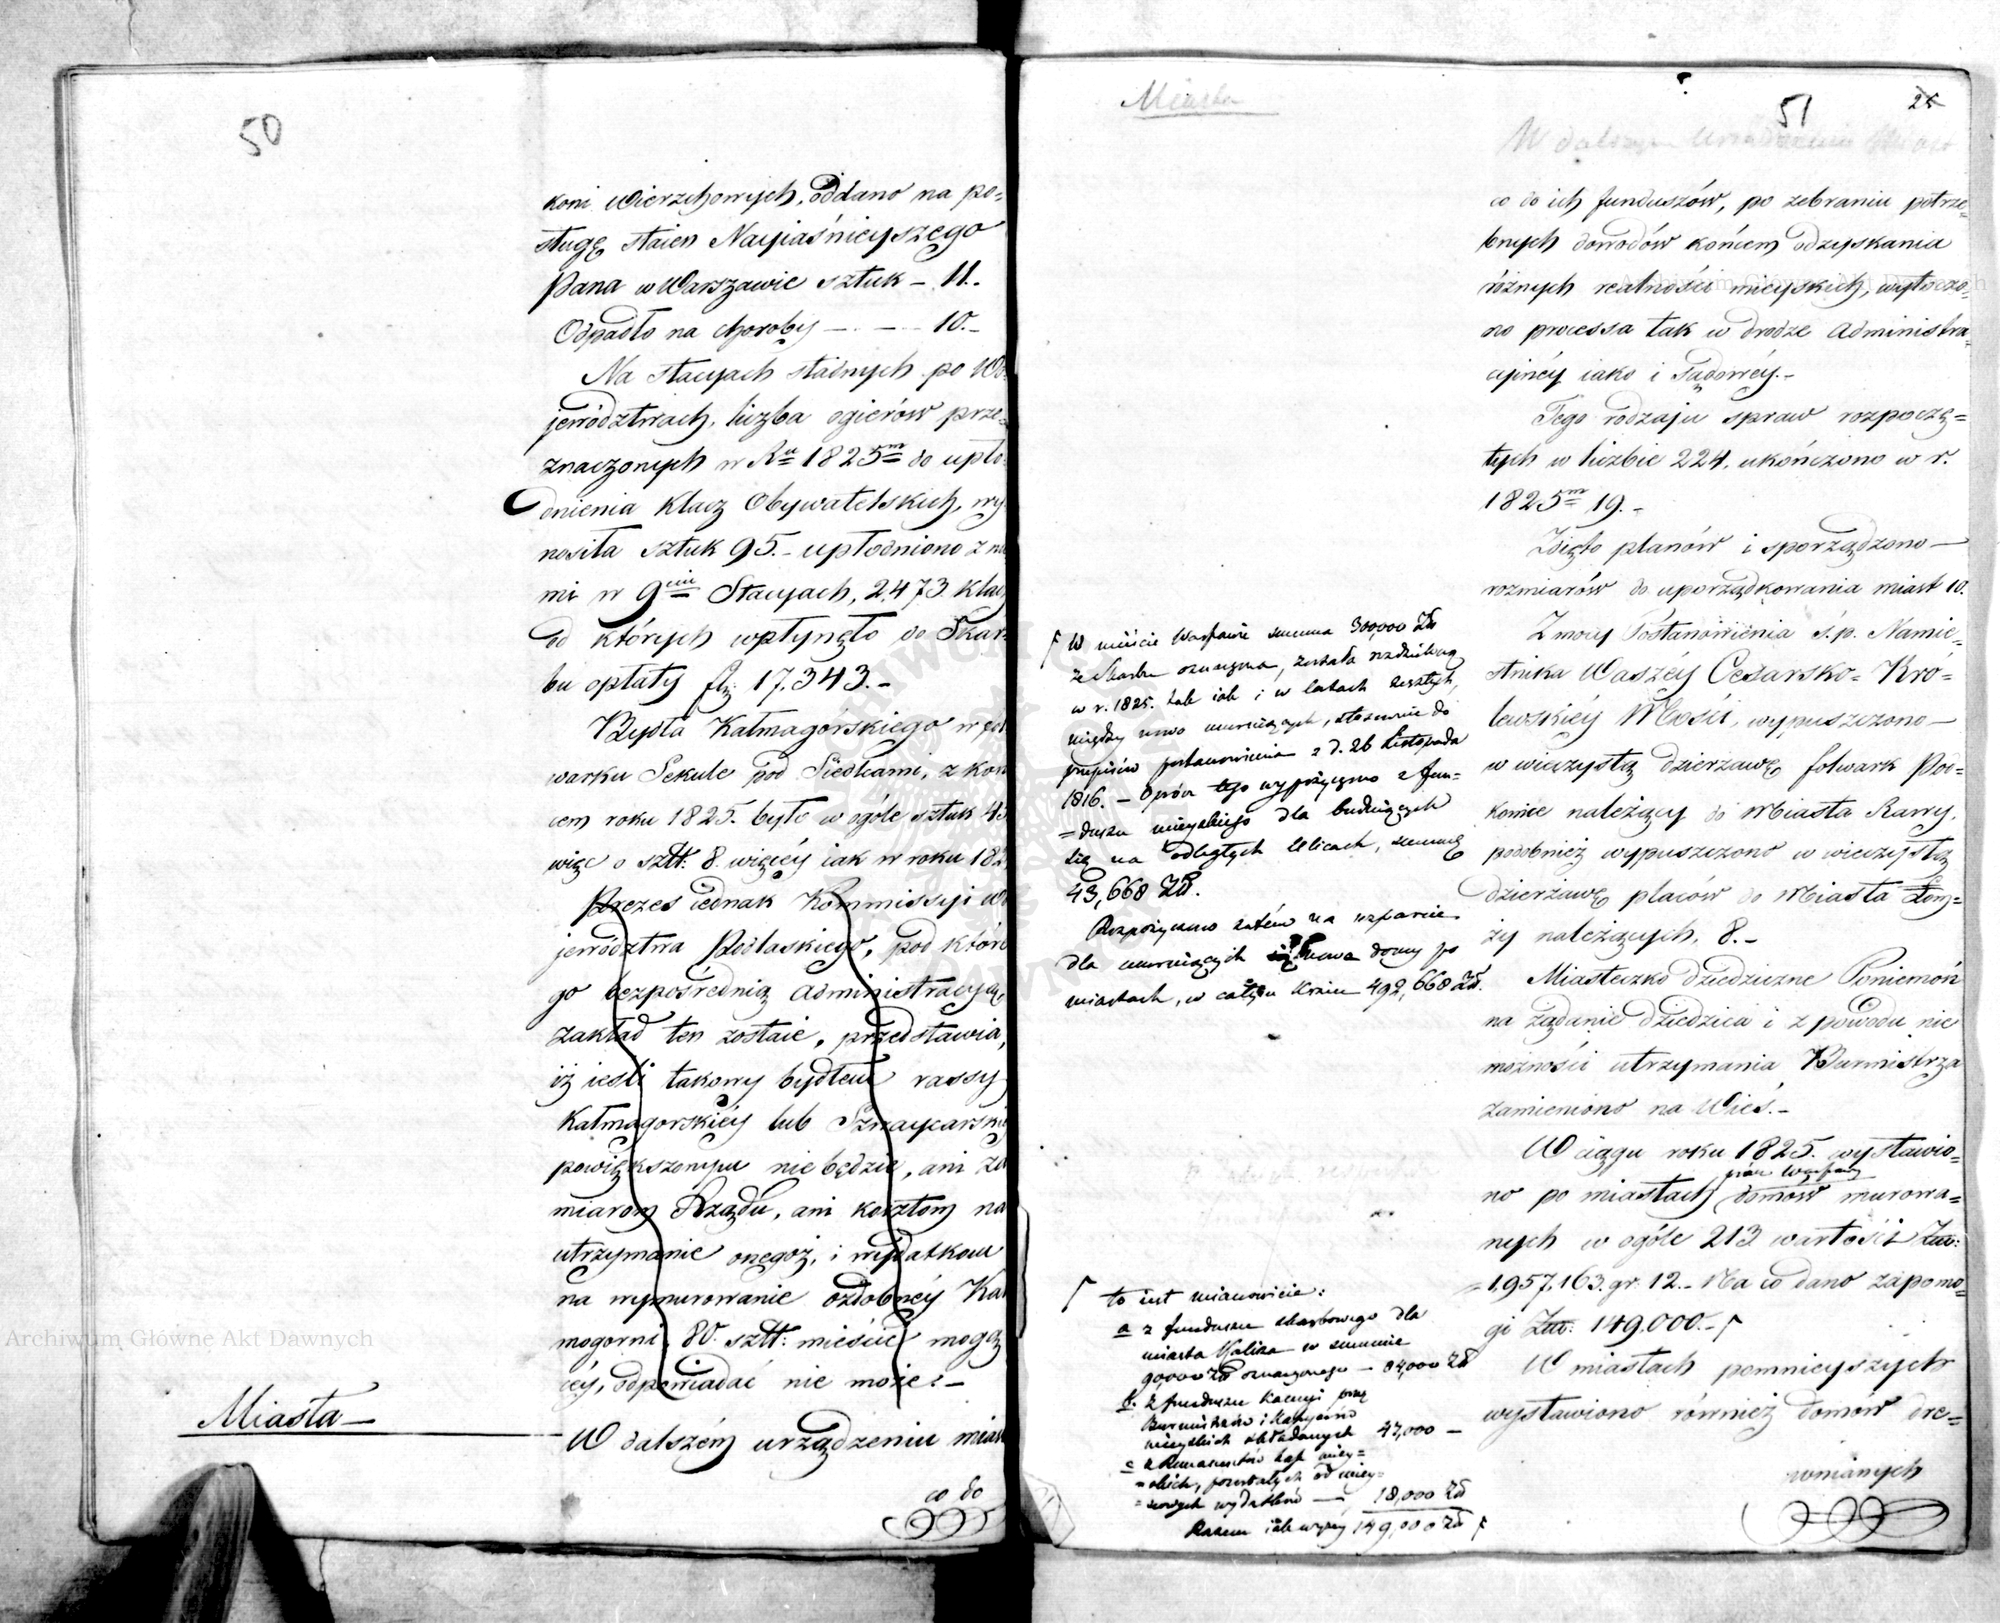 50
koni wierzchowych, oddano na po-
sługę staien Nayiaśnieyszego
Pana w Warszawie sztuk - 11.
Odpadło na choroby - - - 10.-
Na stacyach stadnych po Wo-
jewództwach, liczba ogierów prze-
znaczonych w Ru 1825m do upło-
dnienia klacz Obywatelskich, wy
nosiła sztuk 95.- upłodniono z ni
mi w 9ciu Stacyach, 2,473 klaczy
od których wpłynęło do Skar
bu opłaty flz: 17,343.-
Bydła Kałmagórskiego w fol
warku Sekule pod Siedlcami, z koń
cem roku 1825. było w ogóle sztuk 43
więc o sztt. 8. więcéy iak w roku 182
Prezes iednak Kommissyi Wo
jewództwa Podlaskiego, pod które
go bezpośrednią administracyą,
zakład ten zostaie, przedstawia,
iż ieśli takowy bydłem rassy
Kałmagorskiéy lub Szwaycarski
powiększonym nie będzie, ani za
miarom Rządu, ani kosztom na
utrzymanie onegoż, i wydatkom
na wymurowanie ozdobnéy Kał
mogorni, 80. sztt: mieścić mogą
céy, odpowiadać nie może:-
Miasta-
W dalszém urządzeniu miast
co do
Miasta
51
25
W dalszym urządzeniu Miast
co do ich funduszów, po zebraniu potrze-
bnych dowodów końcem odzyskania
różnych realności mieyskich, wytoczo-
no processa tak w drodze administra-
cyinéy iako i Sądowéy.-
Tego rodzaju spraw rozpoczę-
tych w liczbie 224, ukończono w r.
1825m 19.-
Zdięto planów i sporządzono-
rozmiarów do uporządkowania miast 10.
Z mocy Postanowienia ś.p. Namie-
stnika Waszéy Cesarsko-Kró-
lewskiéy Mości, wypuszczono-
w wieczystą dzierżawę folwark Pod-
konice należący do Miasta Rawy,
podobnież wypuszczono w wieczystą
dzierżawę placów do Miasta Łom-
ży należących, 8.-
Miasteczko dziedziczne Poniemoń
na żądanie dziedzica i z powodu nie
możności utrzymania Burmistrza
zamieniono na Wieś.-
W ciągu roku 1825. wystawio-
no po miastach domów murowa-
nych w ogóle 213 wartości Złł:
1,957,163. gr. 12.- Na co dano zapomo-
gi Złł: 149,000.-
W miastach pomnieyszych
wystawiono również domów dre-
wnianych
W mieście Warszawie summa 300,000 Zł
ze Skarbu oznaczona, została rozdzieloną
w r. 1825. tak iak i w latach zeszłych,
między nowo muruiących, stosownie do
przepisów postanowienia z d. 26 Listopada
1816. - Oprócz tego wypożyczono z fun-
duszu mieyskiego dla buduiących
się na odległych Ulicach, summę
43,668 Zł.
Rozpożyczono zatém na wsparcie
dla muruiących nowe domy po
miastach, w całym Kraiu 492,668 Zł.
to iest mianowicie:
a z funduszu skarbowego dla
miasta Kalisza w summie
90,000 Zł oznaczonego - 84,000 Zł
b. Z funduszu kaucyi przez
Burmistrzów i Kassyerów
mieyskich składanych 47,000 -
c z Remanentów kass miey-
skich, pozostałych od miey-
scowych wydatków - 18,000 Zł
Razem iak wyżey 149,000 Zł
Archiwum Główne Akt Dawnych
Archiwum Główne Akt Dawnych